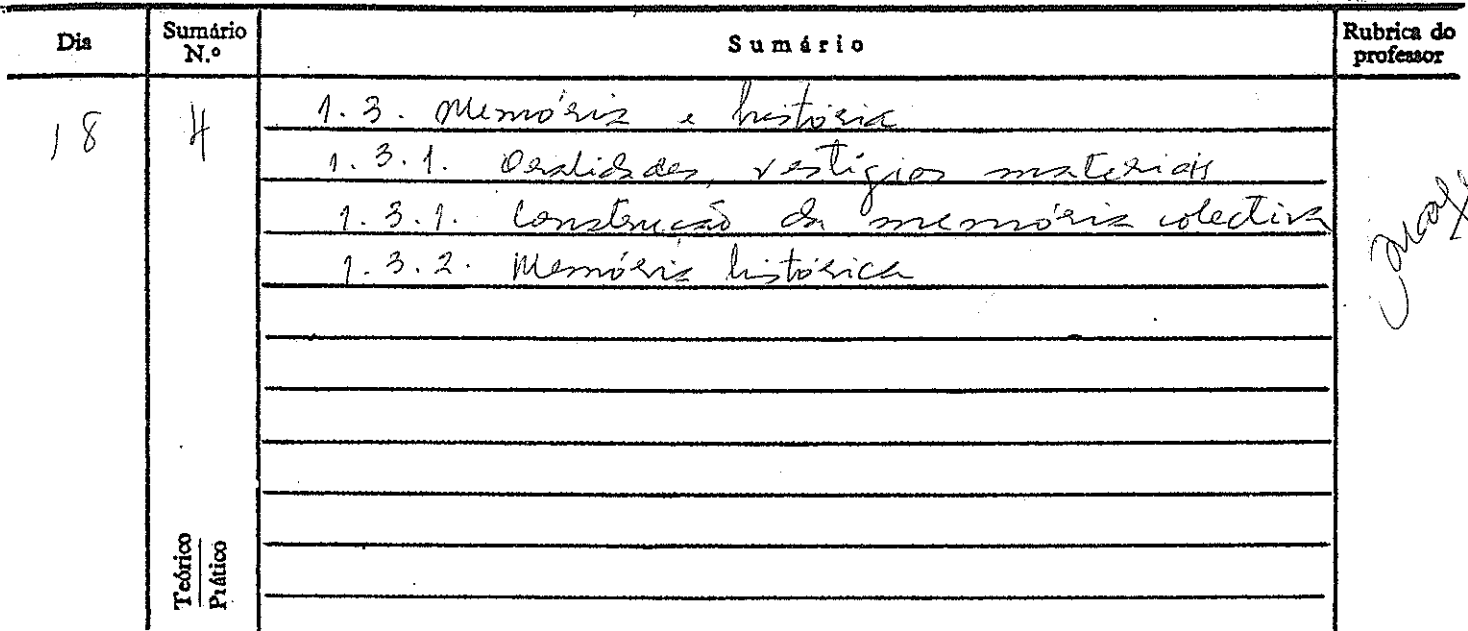 Dia
Sumário N.º
Sumário
Rubrica do professor
18
4
1.3. Memória e história
1.3.1. Oralidades, vestígios materiais
1.3.1. Construção da memória colectiva
1.3.2. Memória histórica
Teórico
Prático